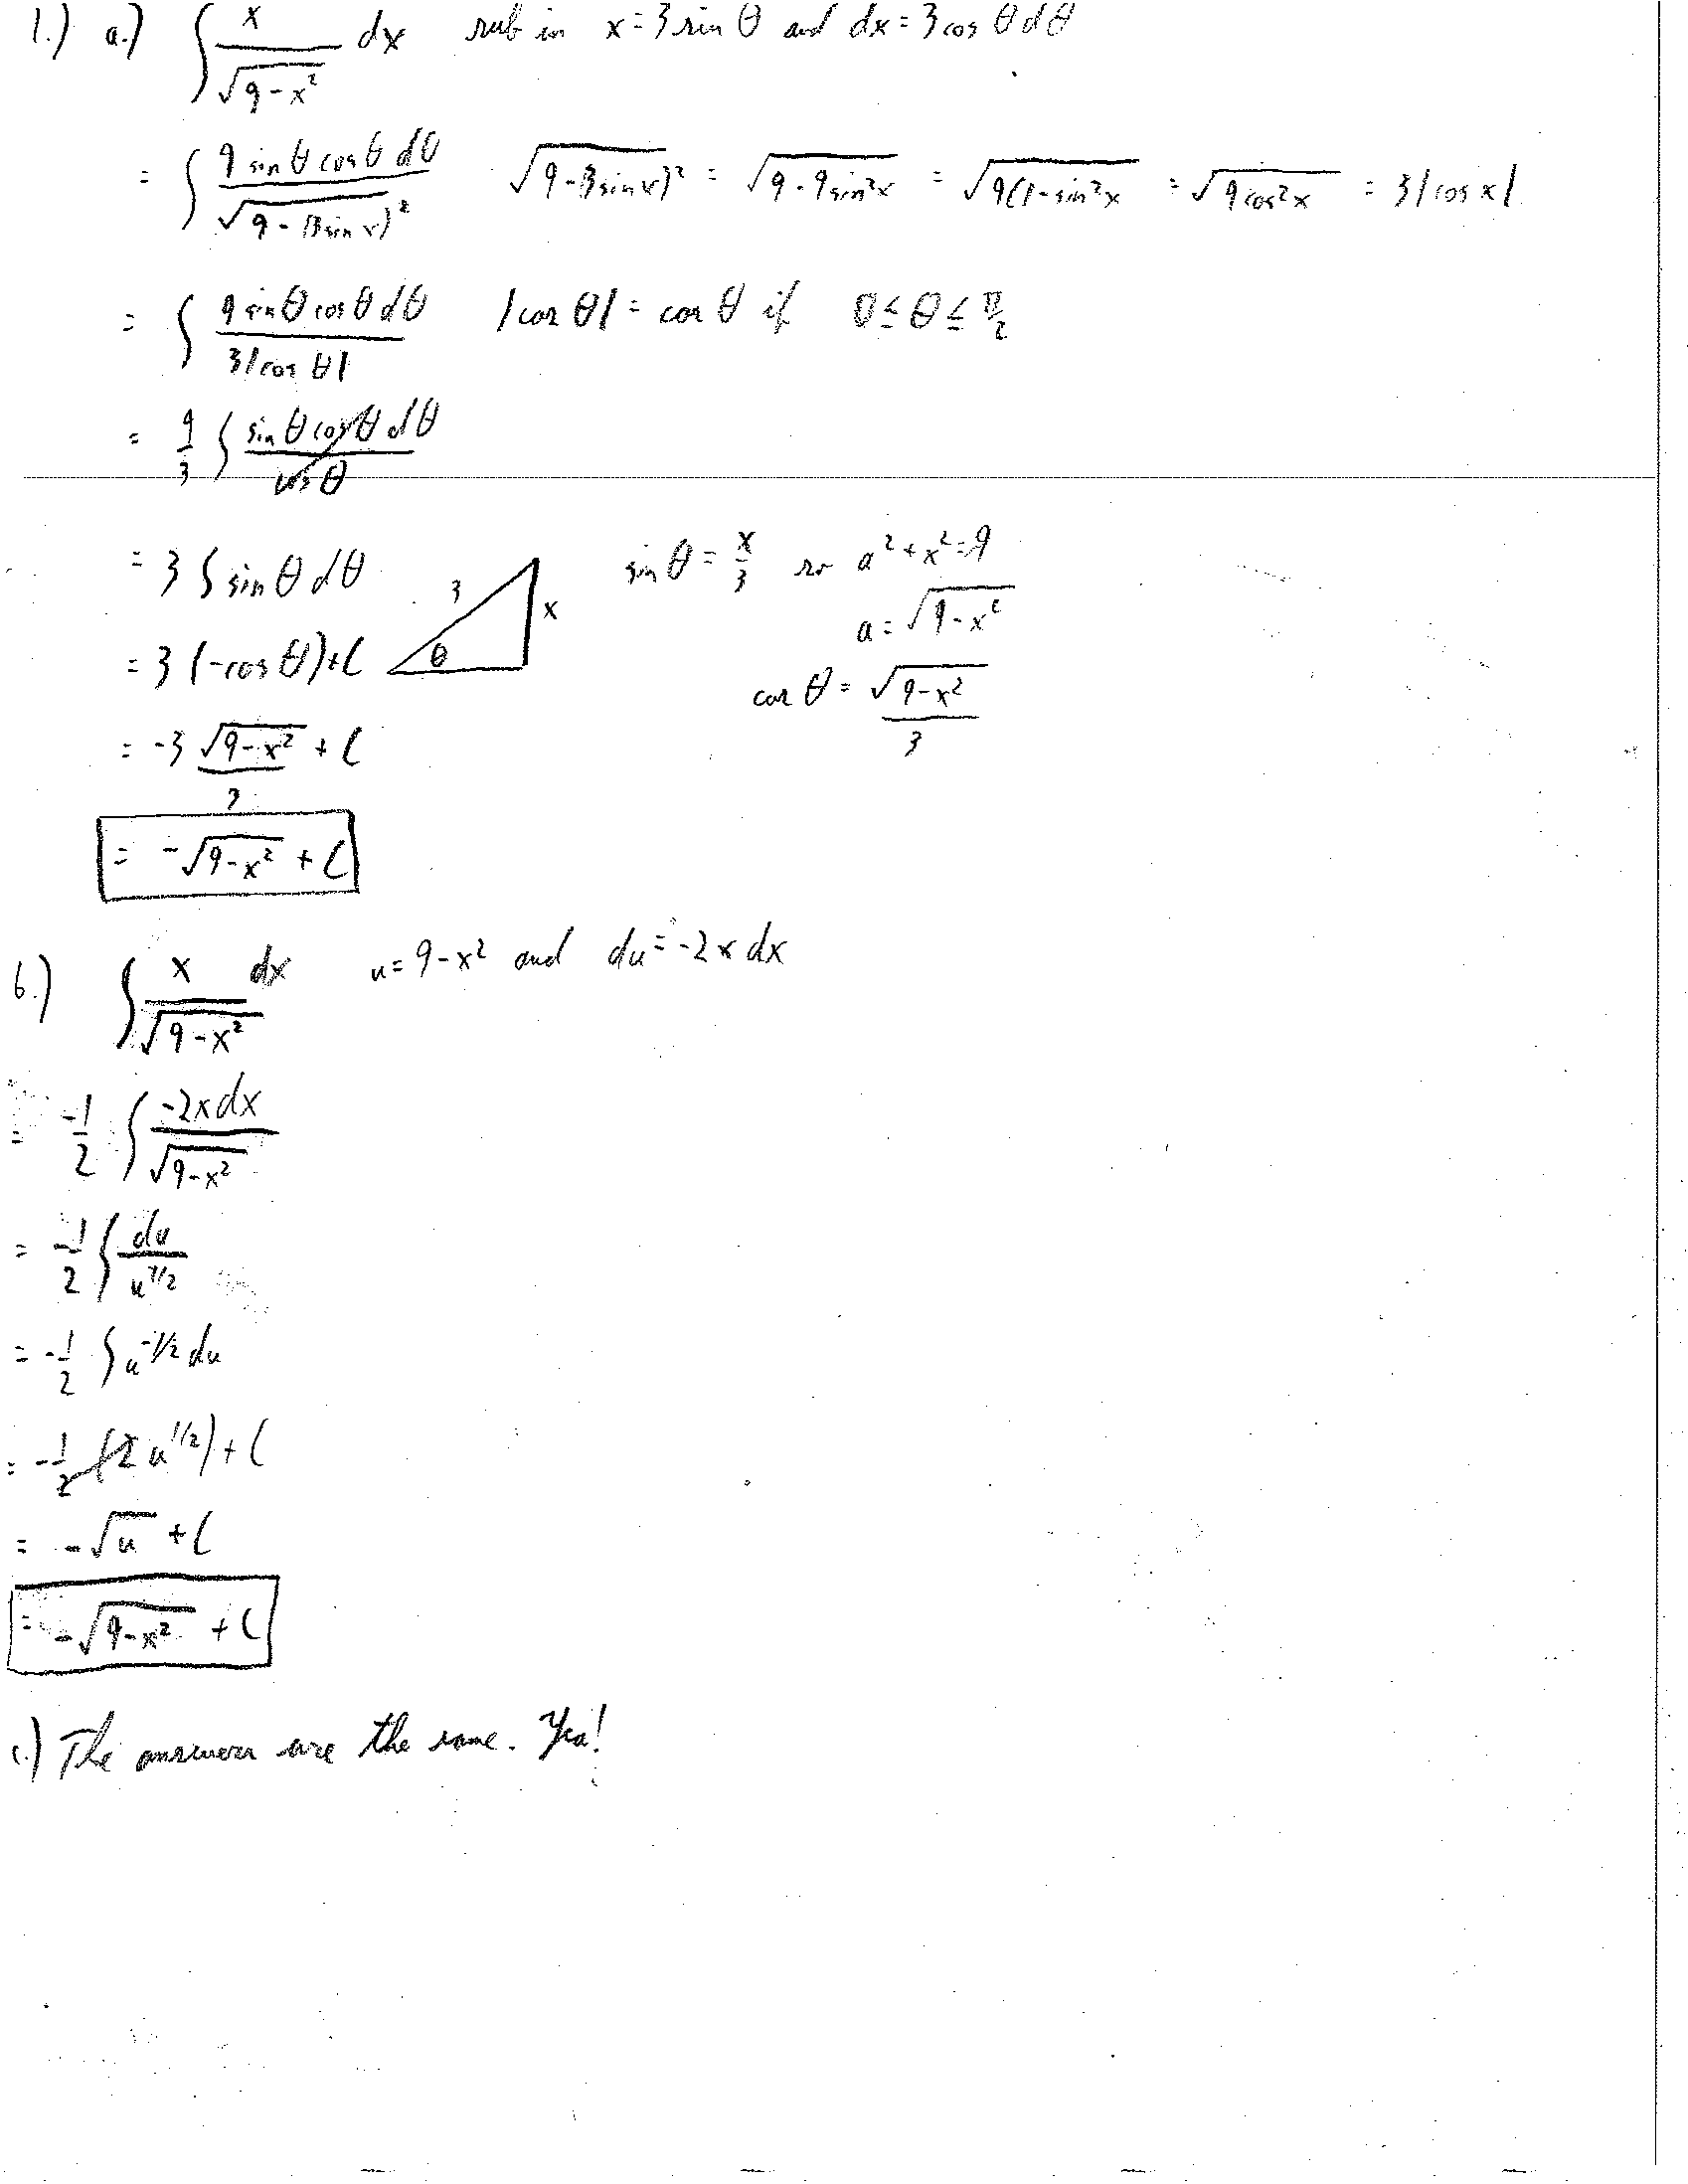 1.) a.) ∫ x/√(9-x²) dx sub in x = 3 sin θ and dx = 3 cos θ dθ
= ∫ 9 sin θ cos θ dθ / √(9-(3 sin x)²) √(9-(3 sin x)²) = √(9-9 sin²x) = √(9(1-sin²x) = √(9cos²x) = 3|cos x|
= ∫ 9 sin θ cos θ dθ / 3|cos θ| |cos θ| = cos θ if 0 ≤ θ ≤ π/2
= 9/3 ∫ sin θ cos θ dθ / cos θ
= 3 ∫ sin θ dθ 3 x θ sin θ = x/3 so a² + x² = 9
a = √(9-x²)
= 3(-cos θ) + C
cos θ = √(9-x²)/3
= -3 √(9-x²)/3 + C
= -√(9-x²) + C
b.) ∫ x/√(9-x²) dx u = 9-x² and du = -2x dx
= -1/2 ∫ -2x dx/√(9-x²)
= -1/2 ∫ du/u^1/2
= -1/2 ∫ u^-1/2 du
= -1/2 (2 u^1/2) + C
= -√u + C
= -√(9-x²) + C
c.) The answers are the same. Yea!